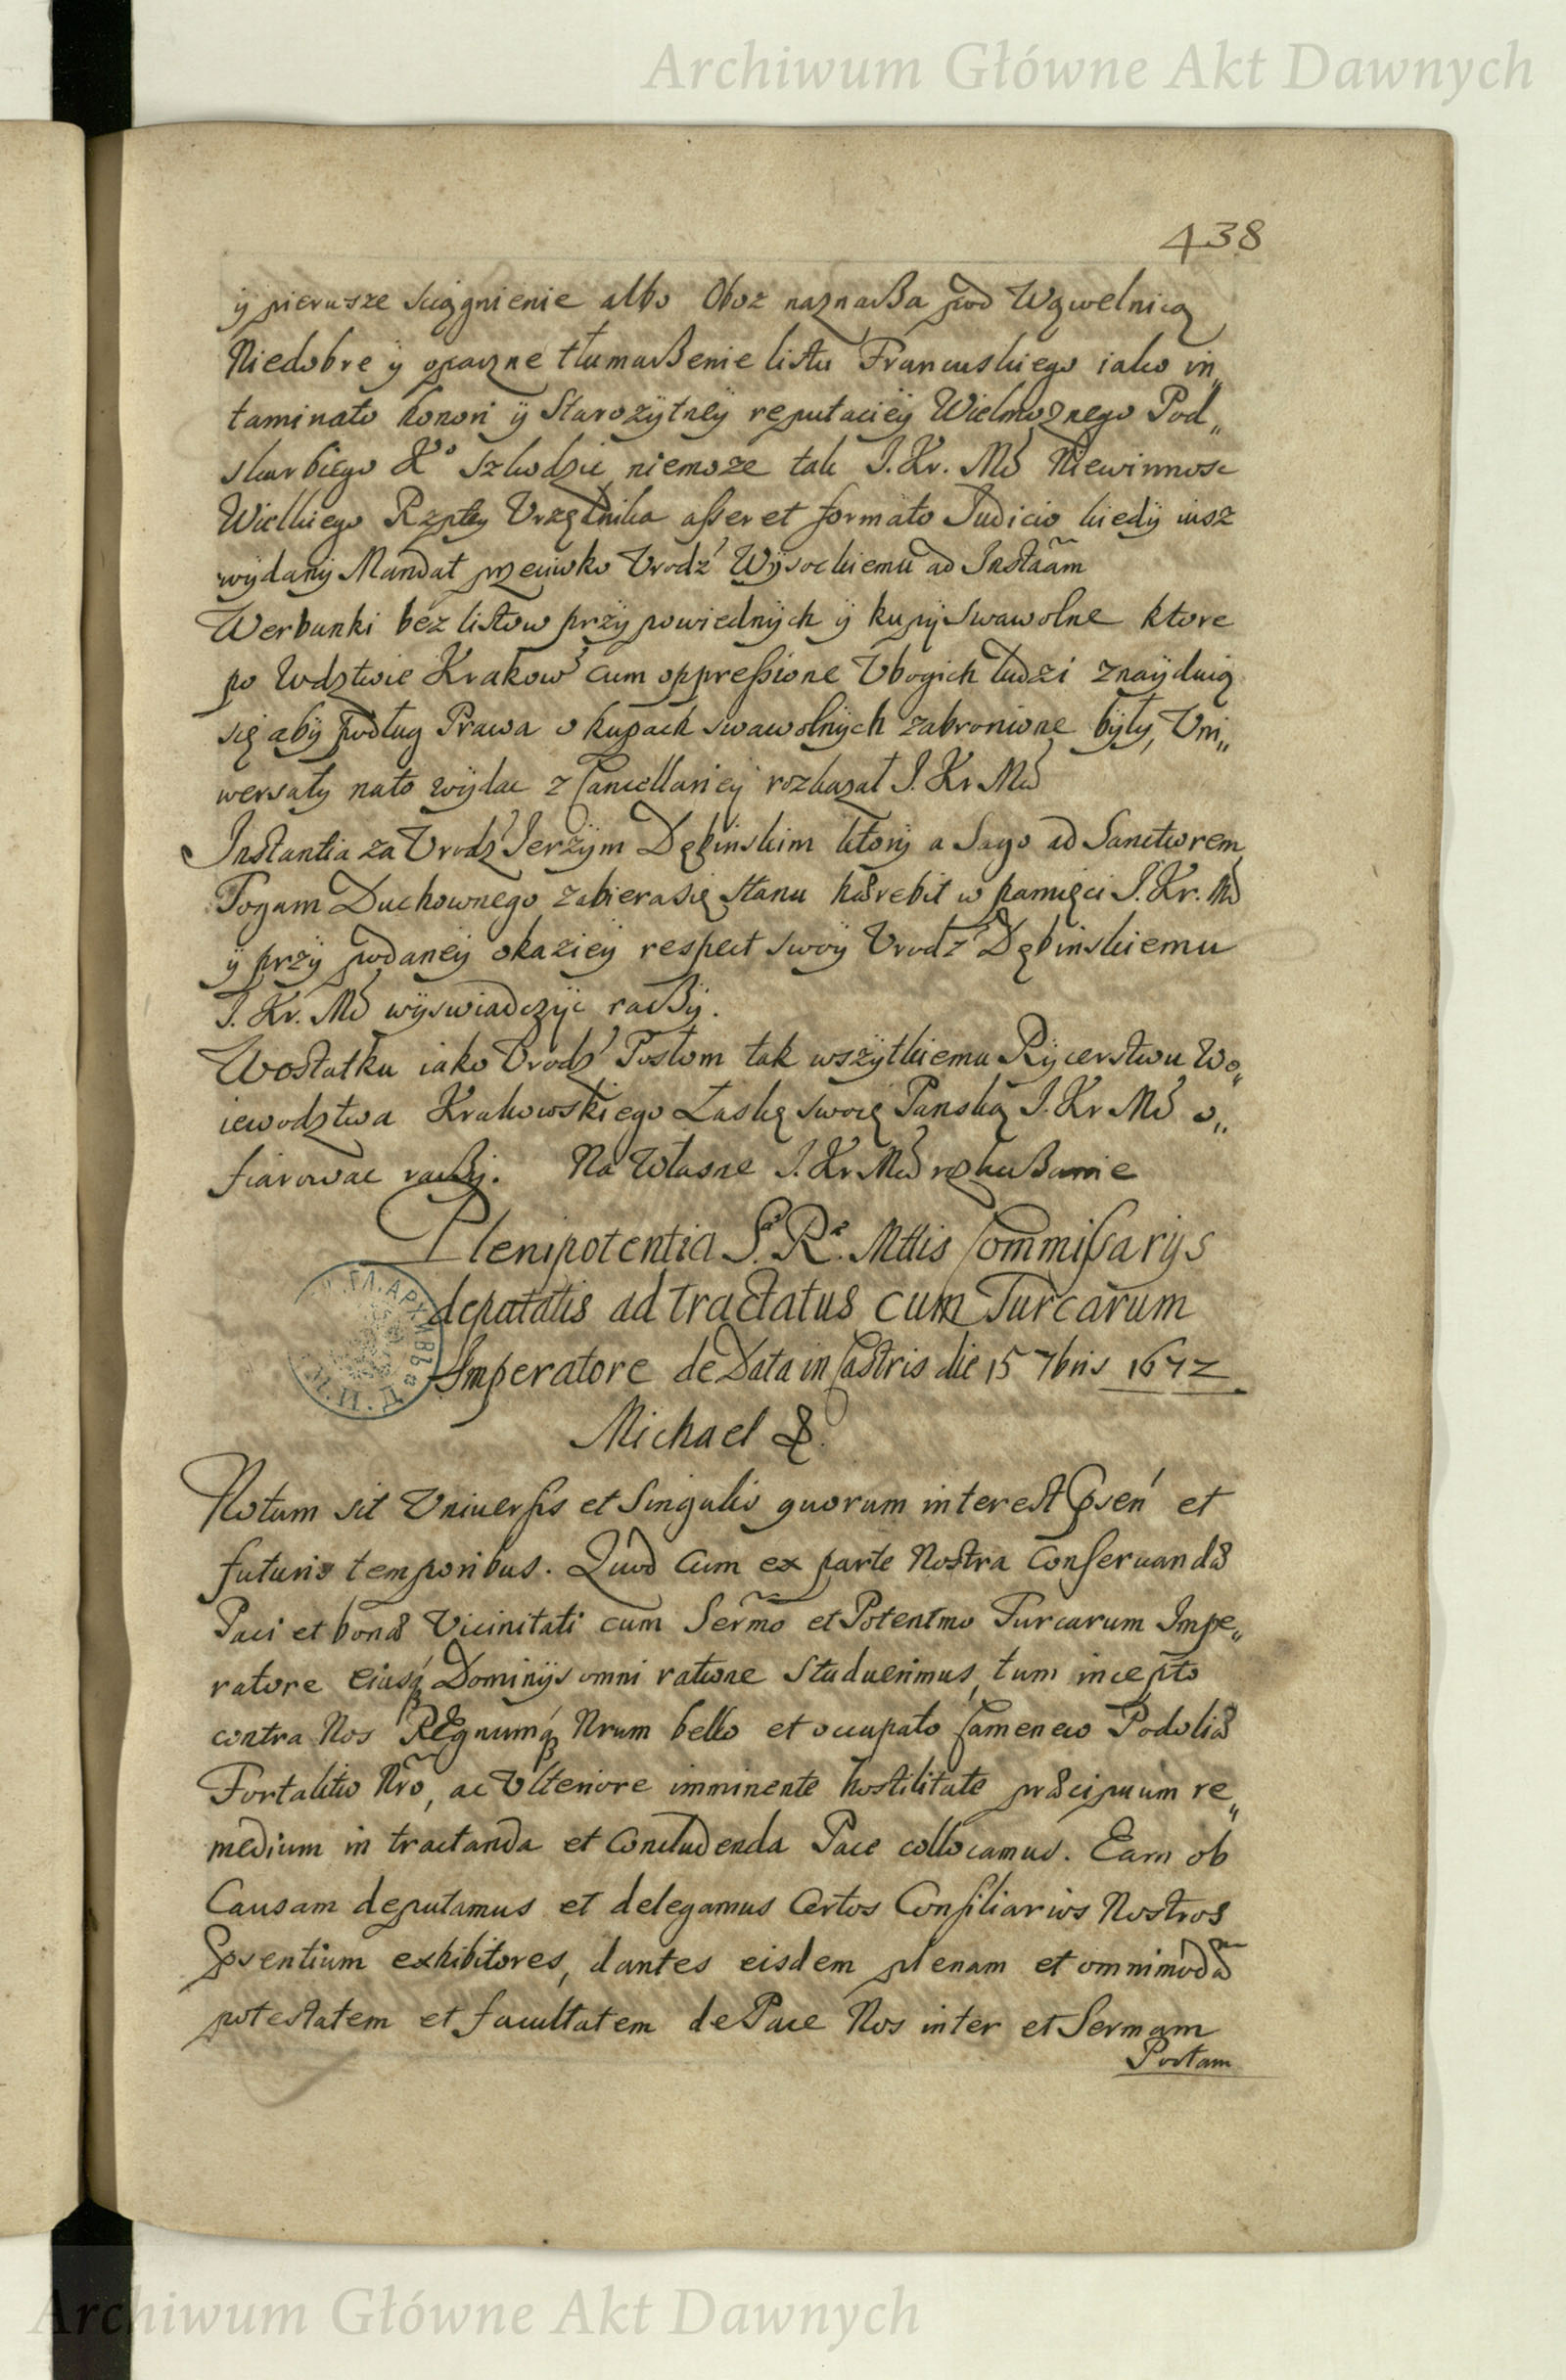 Archiwum Główne Akt Dawnych
438
ÿ pierwsze sciągnienie albo Oboz naznacza pod Wąwelnicą
Niedobre ÿ opaczne tłumaczenie listu Francuskiego iako in„
taminato honori ÿ Starożÿtneÿ reputacieÿ Wielmożnego Pod„
skarbiego Kº szkodzic niemoze tak J. Kr. Mć Niewinnosc
Wielkiego Rzptey Vrzędnika asseret formato Judicio kiedÿ iusz
wÿdanÿ Mandat przeciwko Vrodź Wÿsockiemu ad Instãam
Werbunki bez listow przÿpowiednÿch ÿ kupÿ swawolne ktore
po Wdztwie Krakow cum oppressione Vbogich ludzi znaÿduią
się abÿ podług Prawa o kupach swawolnÿch zabronione bÿłÿ, Vni„
wersałÿ nato wÿdac z Cancellarieÿ rozkazał J. Kr Mć
Instantia za Vrodź Jerzÿm Dębinskim ktorÿ a Sago ad Sanctiorem
Togam Duchownego zabiera się stanu haerebit w pamięci J. Kr. Mć
ÿ przÿ podaneÿ okazieÿ respect swoÿ Vrodź Dębinskiemu
J. Kr. Mć wÿswiadczÿc raczÿ.
Wostatku iako Vrodź Posłom tak wszÿtkiemu Rÿcerstwu Wo„
iewodztwa Krakowskiego Łaskę swoię Panską J. Kr Mć o„
fiarowac raczÿ. Na Własne J. Kr Mći roskazanie
Plenipotentia S. Rª. Mttis Commissarijs
deputatis ad tractatus cum Turcarum
Imperatore de Data in Castris die 15 7bris 1672
Michael &.
Notum sit Vniuersis et Singulis quorum interest Psen et
futuris temporibus. Quod Cum ex parte Nostra Conseruandae
Paci et bonae Vicinitati cum Serm̃o et Potentmo Turcarum Impe„
ratore eiusq̃ Dominijs omni ratione Studuerimus, tum incepto
contra Nos REgnumq̃ Nrum bello et occupato Cameneco Podoliae
Fortalitio Nr̃o, ac Vlteriore imminente hostilitate praecipuum re„
medium in tractanda et Concludenda Pace collocamus. Eam ob
Causam deputamus et delegamus Certos Consiliarios Nostros
Psentium exhibitores, dantes eisdem plenam et omnimodã
potestatem et facultatem de Pace Nos inter et Sermam
Portam
Archiwum Główne Akt Dawnych